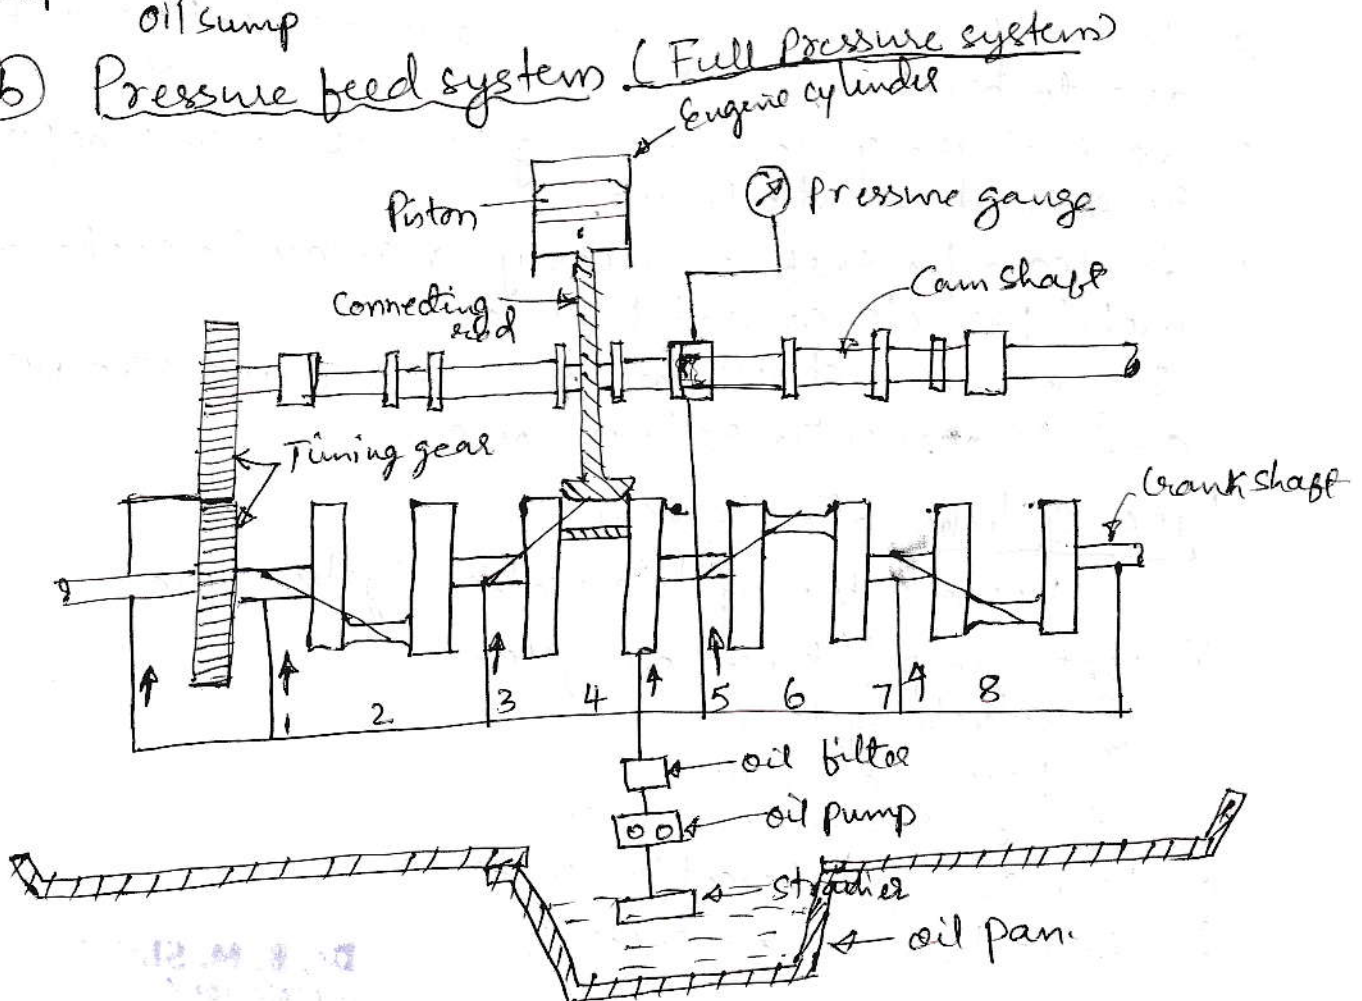 oil sump
b) Pressure feed system (Full Pressure system)
Engine cylinder
Piston
Pressure gauge
Connecting rod
Cam shaft
Timing gear
Crank shaft
1 2 3 4 5 6 7 8
oil filter
oil pump
oil pan.